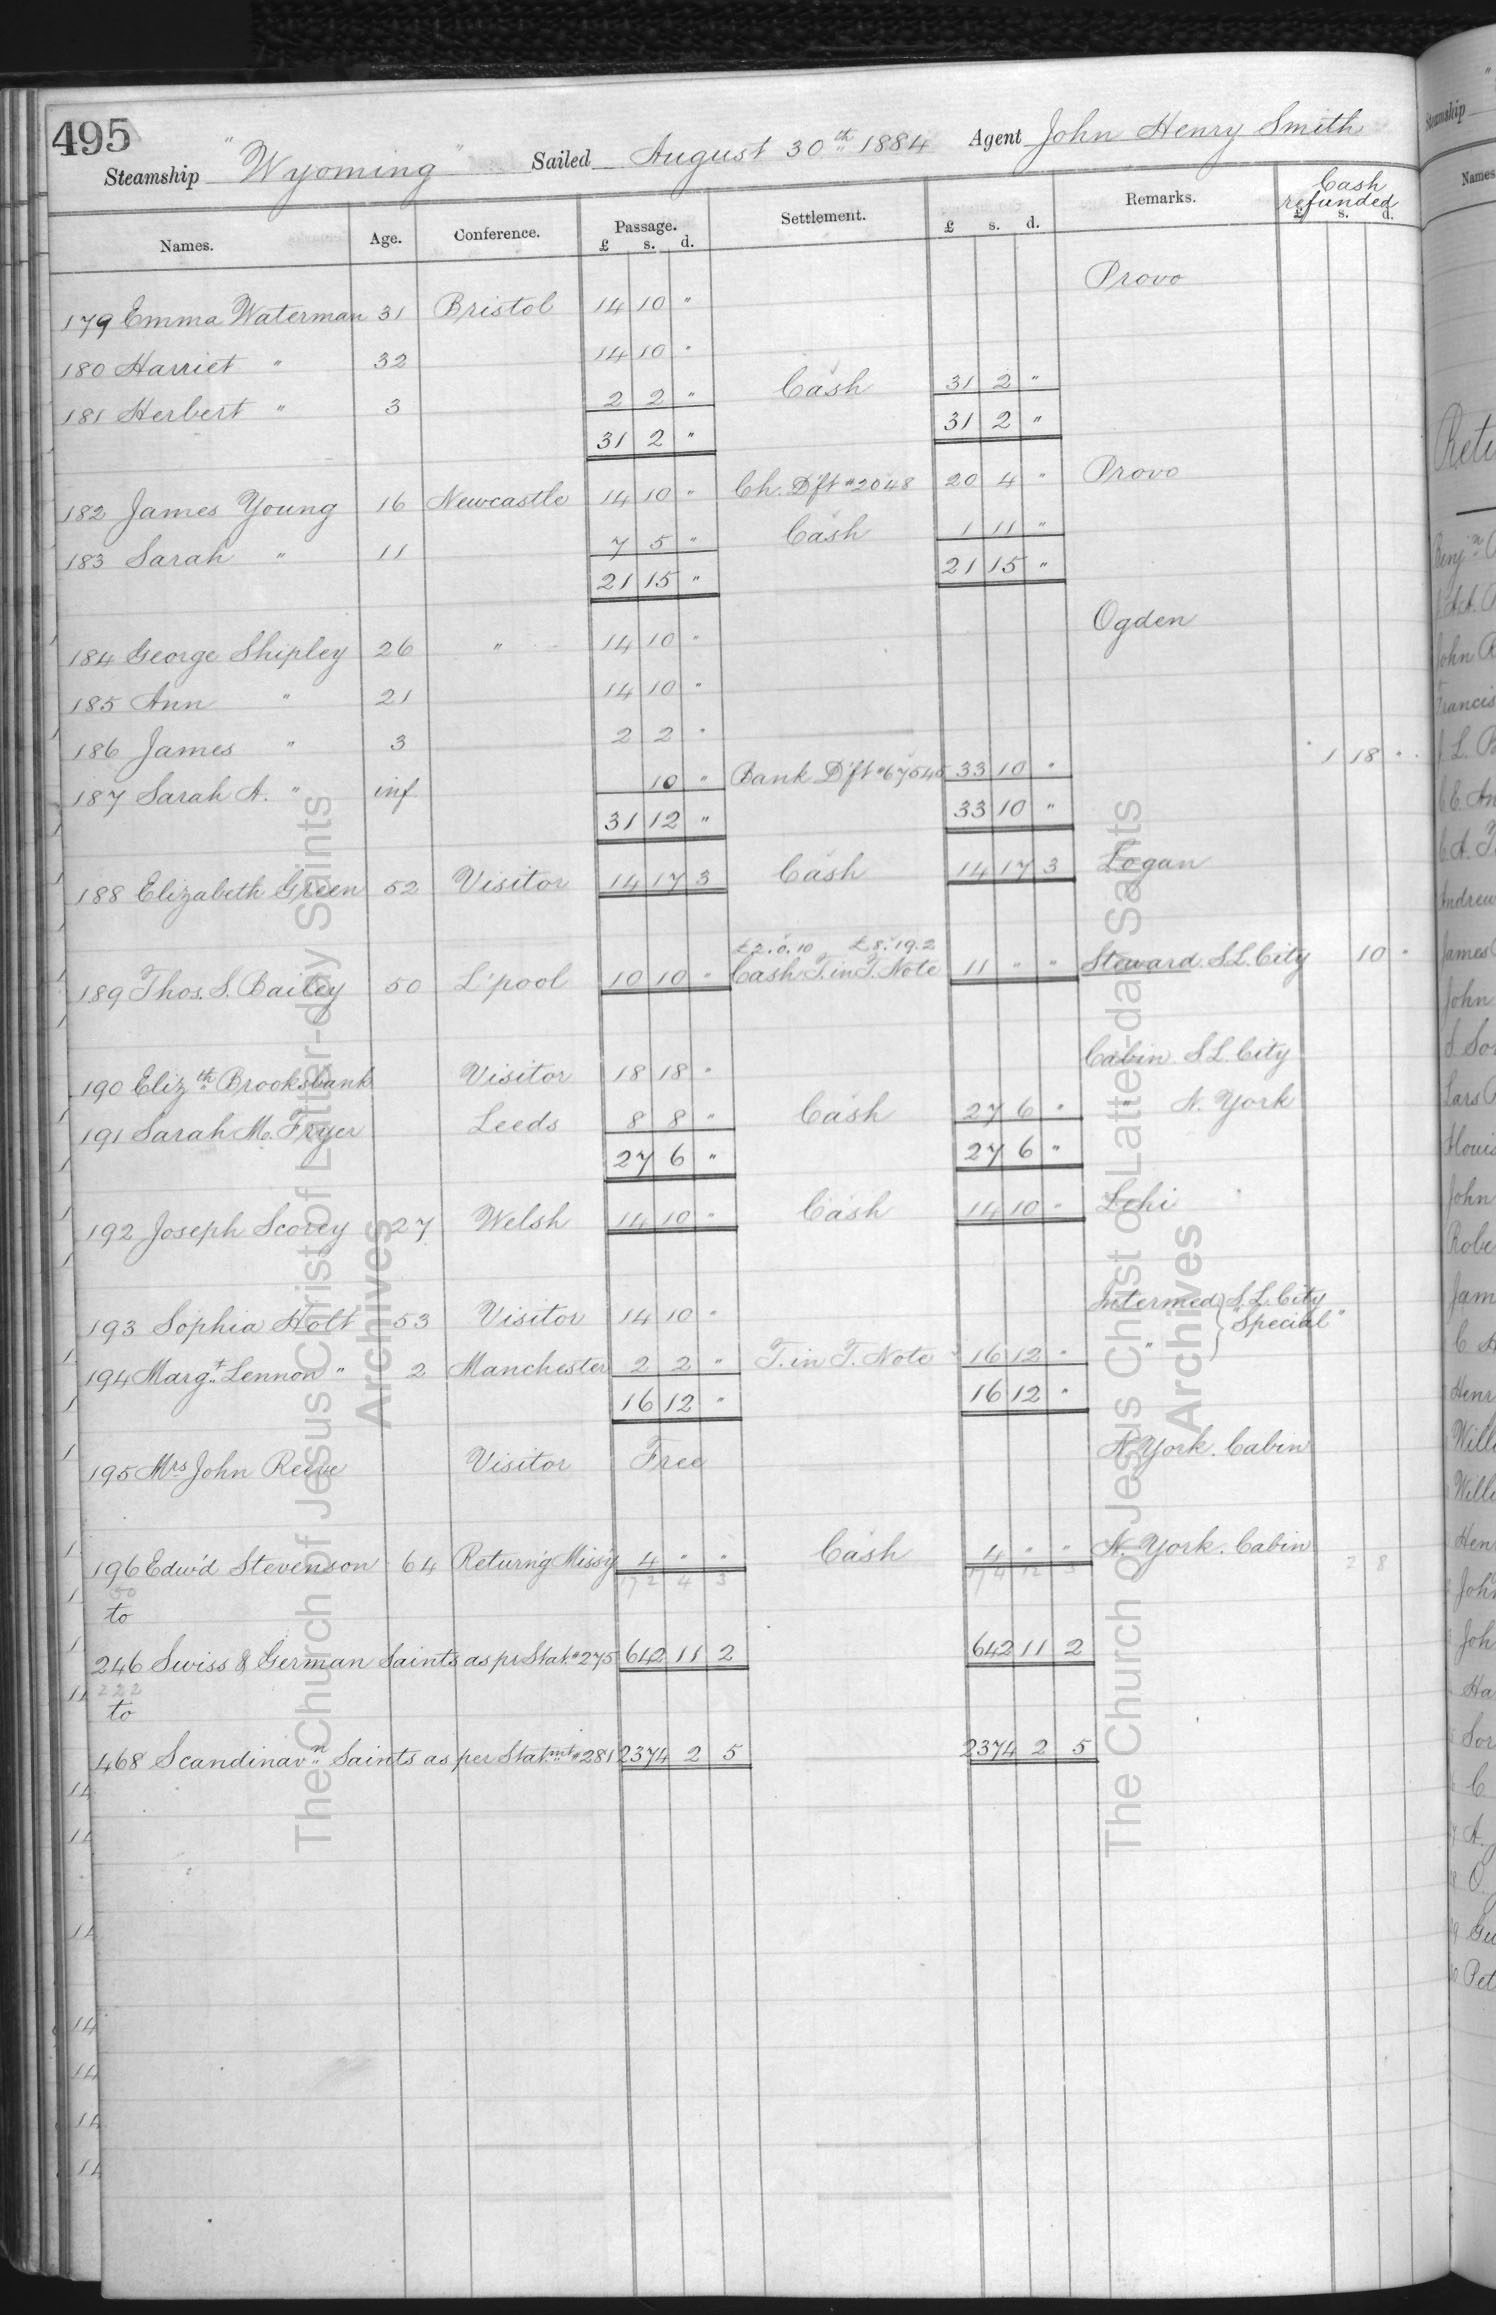 495
Steamship "Wyoming" Sailed August 30th 1884 Agent John Henry Smith
Names. Age. Conference. Passage. £ s. d. Settlement. £ s. d. Remarks. Cash refunded £ s. d.
179 Emma Waterman 31 Bristol 14 10 " Provo
180 Harriet " 32 14 10 "
181 Herbert " 3 2 2 " Cash 31 2 "
31 2 " 31 2 "
182 James Young 16 Newcastle 14 10 " Ch. D'ft #2048 20 4 " Provo
183 Sarah " 11 7 5 " Cash 1 11 "
21 15 " 21 15 "
184 George Shipley 26 " 14 10 " Ogden
185 Ann " 21 14 10 "
186 James " 3 2 2 "
187 Sarah A. " inf 10 " Bank D'ft #67545 33 10 " 1 18 "
31 12 " 33 10 "
188 Elizabeth Green 52 Visitor 14 17 3 Cash 14 17 3 Logan
£2.0.10 £8.19.2
189 Thos. S. Bailey 50 L'pool 10 10 " Cash T. in T. Note 11 " " Steward S.L. City 10 "
190 Elizth Brooksbank Visitor 18 18 " Cabin S.L. City
191 Sarah M. Fryer Leeds 8 8 " Cash 27 6 " " N. York
27 6 " 27 6 "
192 Joseph Scorey 27 Welsh 14 10 " Cash 14 10 " Lehi
193 Sophia Holt 53 Visitor 14 10 " Intermed S.L. City "Special"
194 Margt Lennon " 2 Manchester 2 2 " T. in T. Note 16 12 " "
16 12 " 16 12 "
195 Mrs John Reeve Visitor Free N. York. Cabin
196 Edw'd Stevenson 64 Return'g Miss'y 4 " " Cash 4 " " N. York. Cabin
50 172 4 3 174 12 3 2 8
to
246 Swiss & German Saints as pr Stat. #275 642 11 2 642 11 2
222
to
468 Scandinavn Saints as per Statmt #281 2374 2 5 2374 2 5
The Church of Jesus Christ of Latter-day Saints
Archives
The Church of Jesus Christ of Latter-day Saints
Archives
Steamship
Names